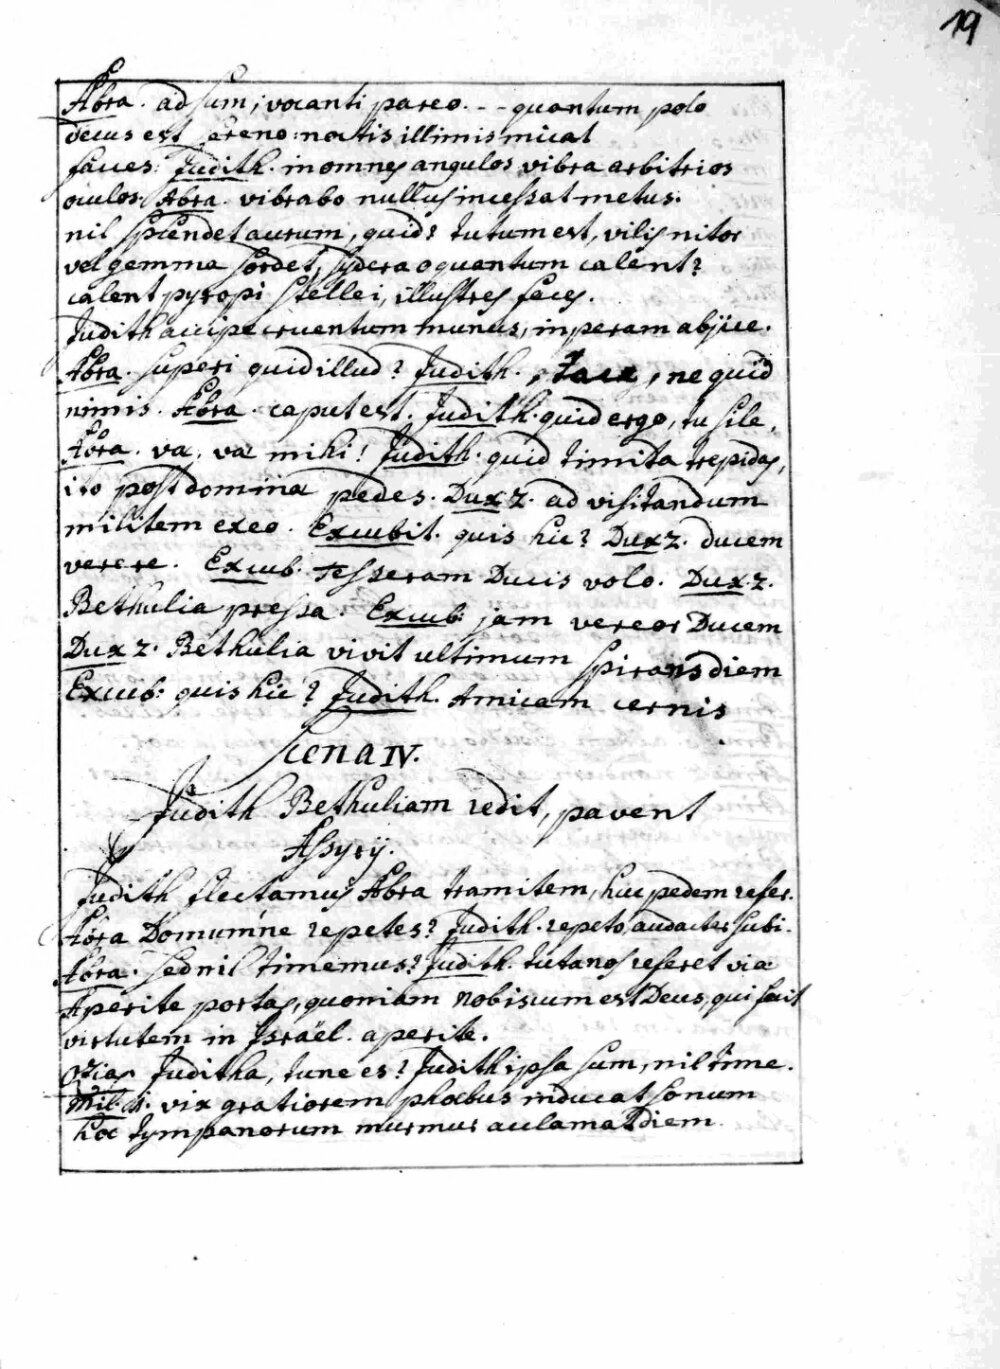 19
Abra. adsum; vocanti pareo. - - quantum polo
decus est sereno: noctis illimis micat
faces: Judith. in omnes angulos vibra arbitrios
oculos. Abra. vibrabo nullus incessat metus.
nil splendet aurum, quid? tutum est, vilis nitor
vel gemma sordet, sydera o quantum calent?
calent pyropi stellei, illustres faces.
Judith accipe cruentum munus, in peram abjice.
Abra. superi quid illud? Judith. , tace, ne quid
nimis. Abra. caput est. Judith. quid ergo, tu sile,
Abra. va, va mihi! Judith. quid timita trepidas,
ito post domina pedes. Dux 2. ad visitandum
militem exeo. Excubit. quis hic? Dux 2. ducem
verere. Excub. Tesseram Ducis volo. Dux. 2.
Bethulia pressa. Excub: jam vereor Ducem
Dux 2. Bethulia vivit ultimum spirans diem
Excub: quis hic? Judith. Amicam cernis
Scena IV.
Judith Bethuliam redit, pavent
Assyrÿ.
Judith flectamus Abra tramitem, huc pedem refer.
Abra Domumne repetes? Judith. repeto, audacter subi.
Abra. sed nil timemus? Judith. tuta nos referet via
Aperite portas, quoniam nobiscum est Deus, qui fecit
virtutem in Israël. aperite.
Ozias Juditha, tune es? Judith ipsa sum, nil time.
Mil. vix gratiorem phœbus inducat sonum
hoc tympanorum murmur acclamat diem